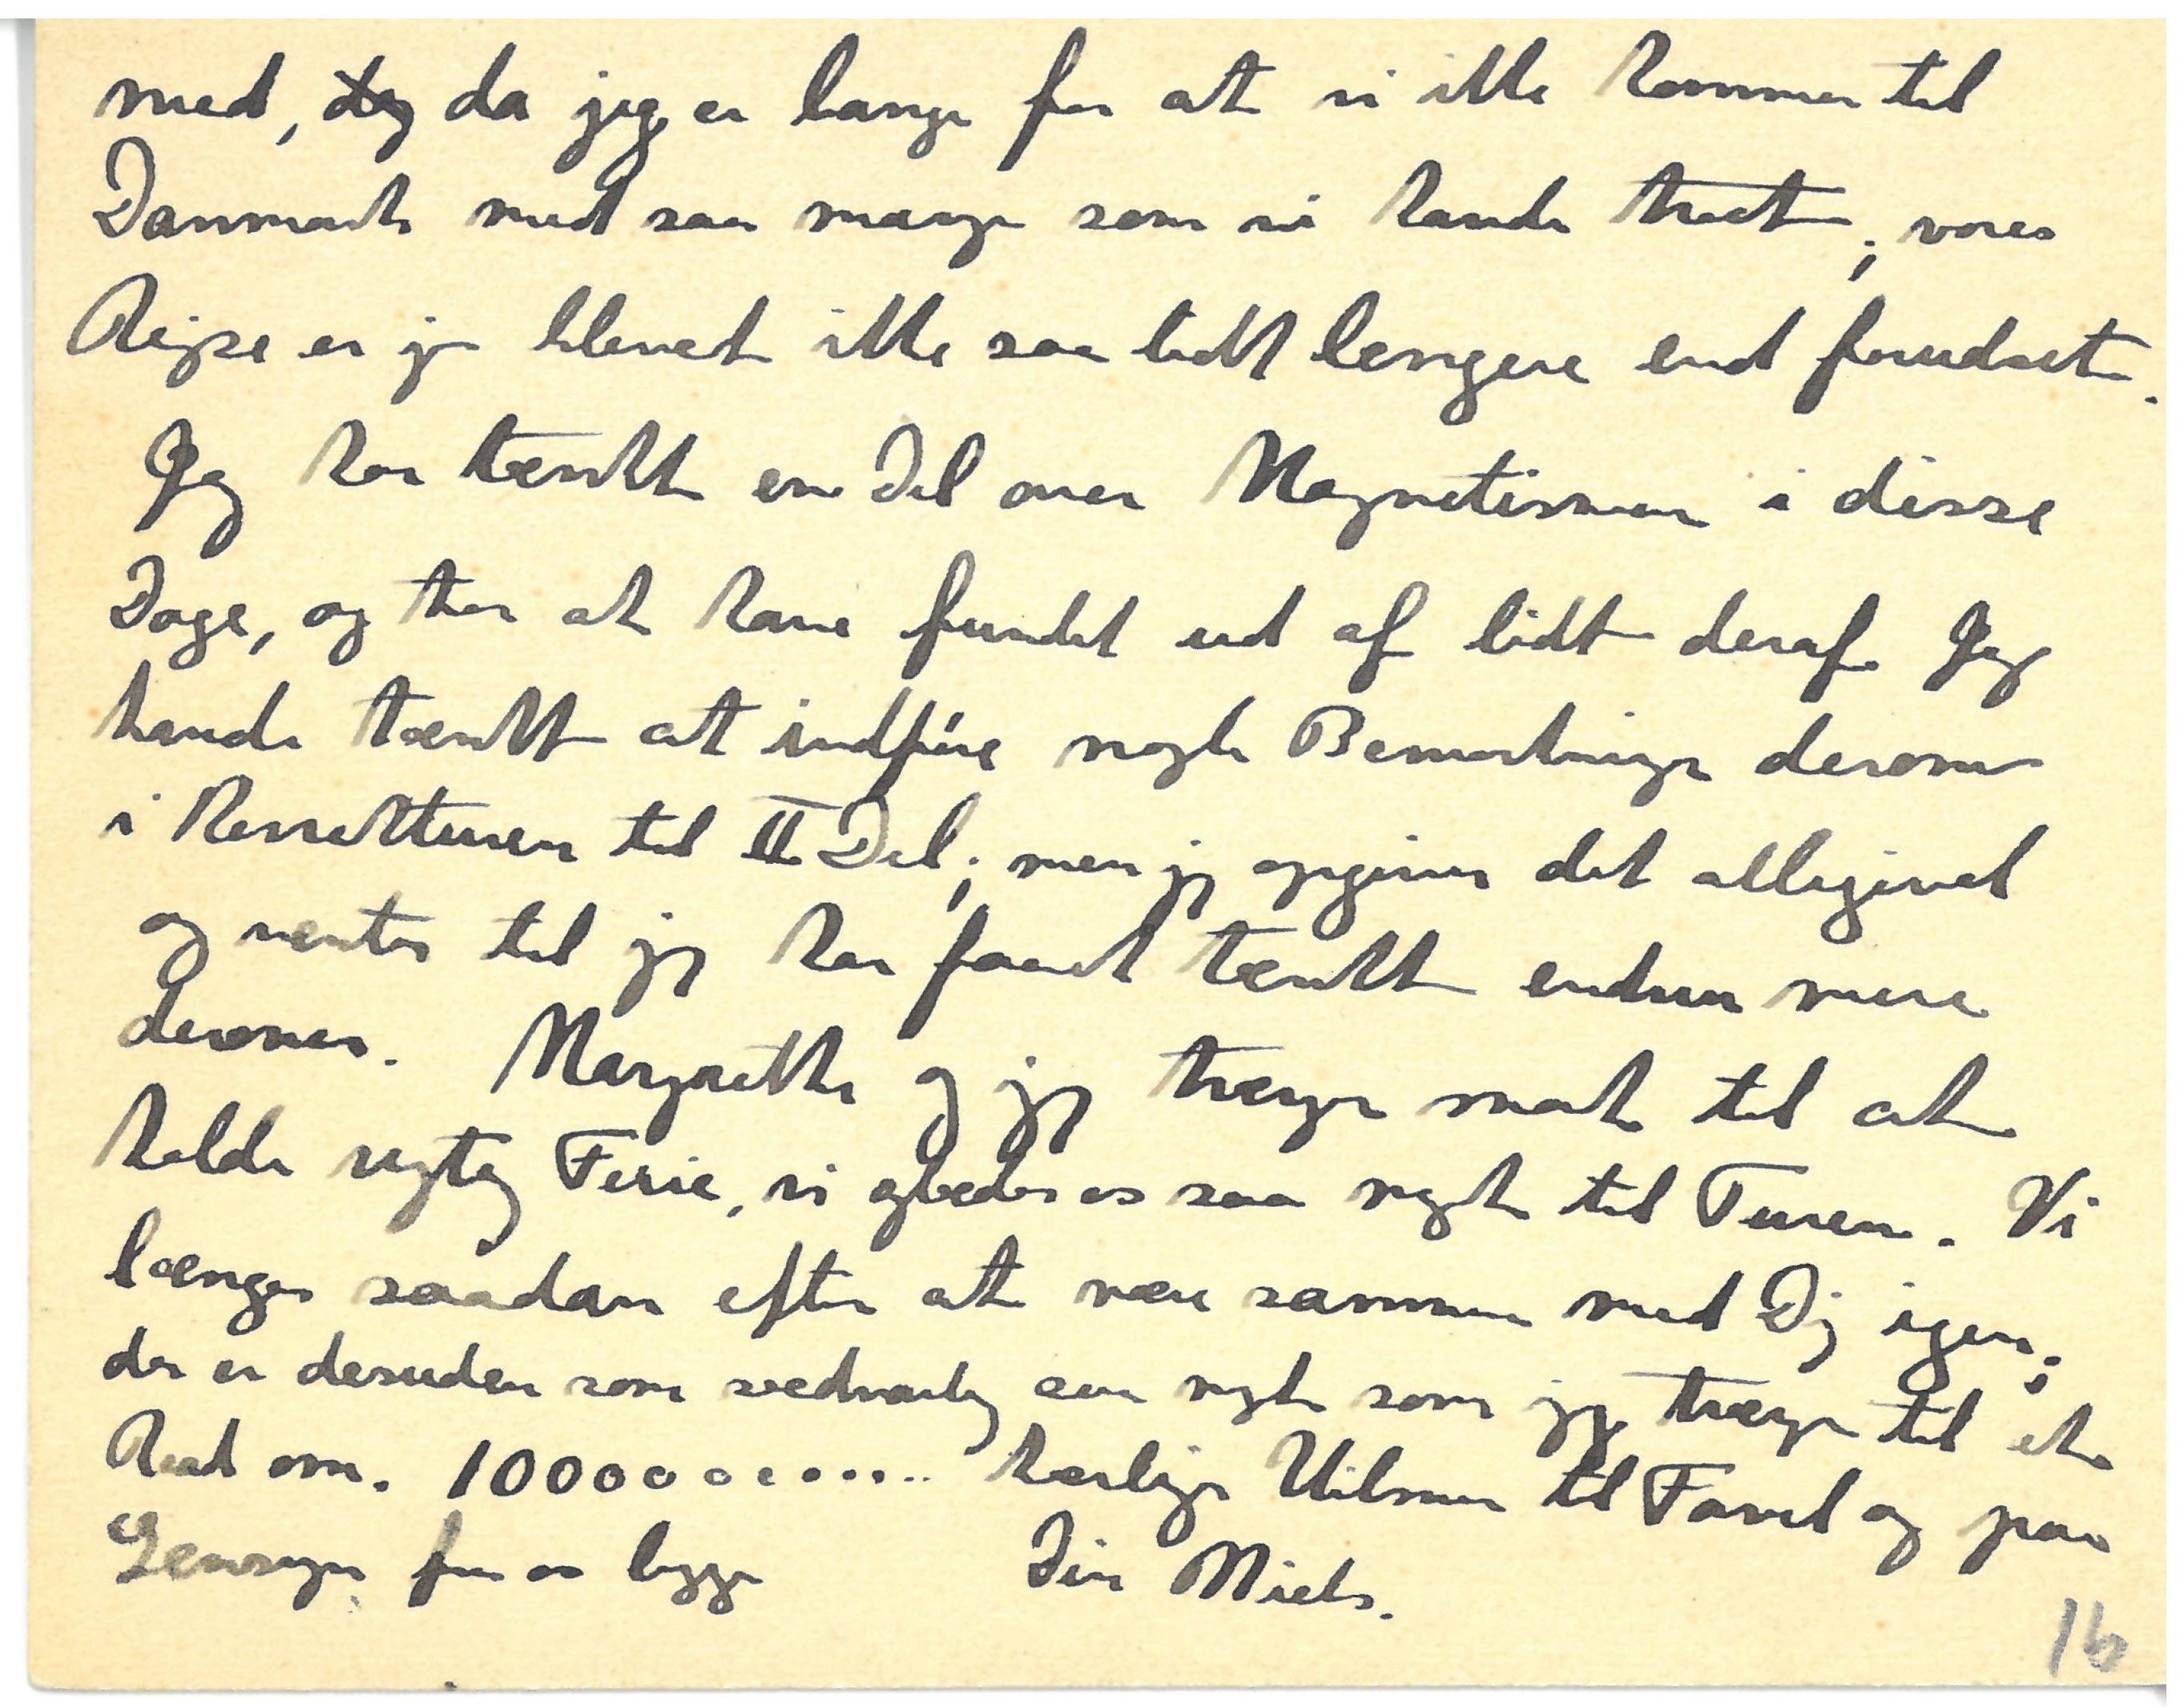 med, da jeg er bange for at vi ikke kommer til
Danmark med saa mange som vi havde troet; vores
Rejse er jo blevet ikke saa lidt længere end forudset.
Jeg har tænkt en Del over Magnetismen i disse
Dage, og tror at have fundet ud af lidt deraf. Jeg
havde tænkt at indføre nogle Bemærkninger derom
i Korrekturen til II Del; men jeg opgiver det alligevel
og venter til jeg har faaet tænkt endnu mere
derover. Margrethe og jeg trænger snart til at
holde rigtig Ferie, vi glæder os saa meget til Turen. Vi
længes saadan efter at være sammen med Dig igen;
der er desuden som sædvanlig saa meget som jeg trænger til et
Raad om. 100000000..... kærlige Hilsner til Farvel og paa
Gensyn fra os begge Din Niels.
16